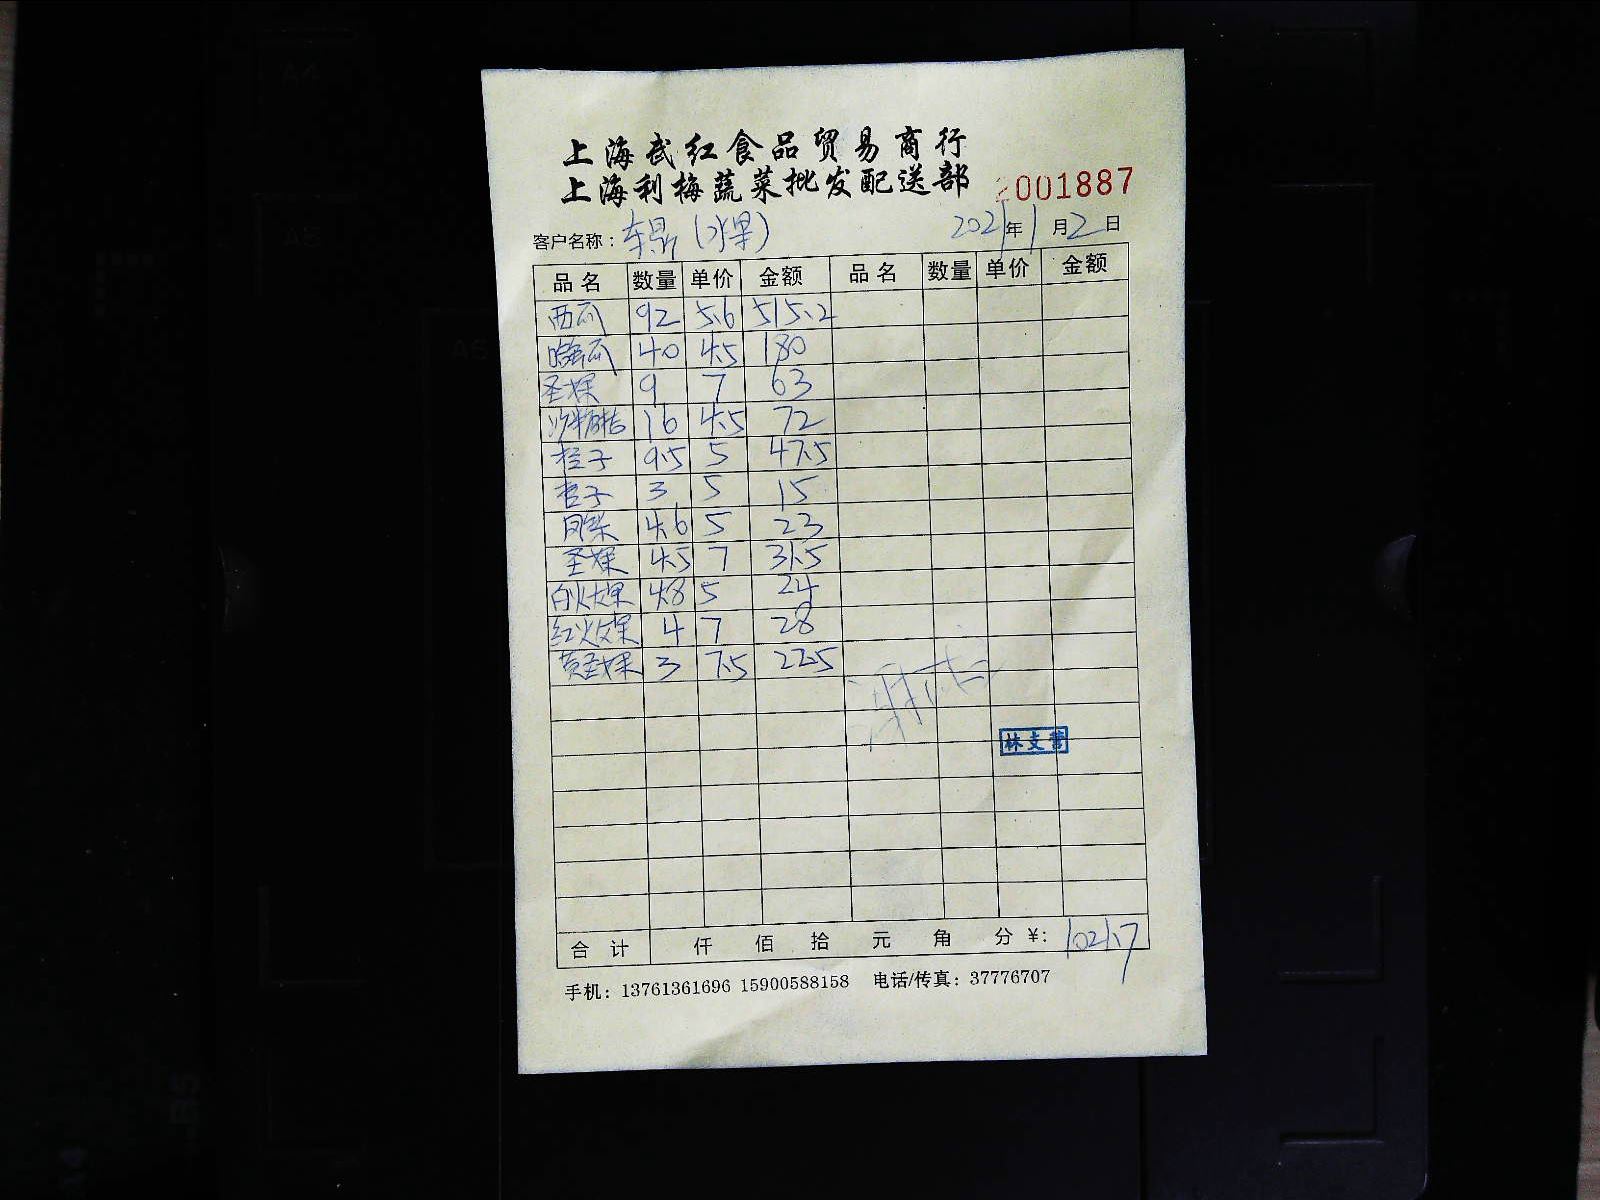 上海武红食品贸易商行
上海利梅蔬菜批发配送部 2001887
客户名称：东鼎（水果） 2021年1月2日
品名 数量 单价 金额 品名 数量 单价 金额
西瓜 92 5.6 515.2
哈蜜瓜 40 4.5 180
圣女果 9 7 63
沙糖桔 16 4.5 72
橙子 9.5 5 47.5
3 5 15
凤梨 4.6 5 23
圣女果 4.5 7 31.5
白火龙果 4.8 5 24
红火龙果 4 7 28
黄圣女果 3 7.5 22.5
林支营
合计 仟 佰 拾 元 角 分 ¥：1021.7
手机：13761361696 15900588158 电话/传真：37776707